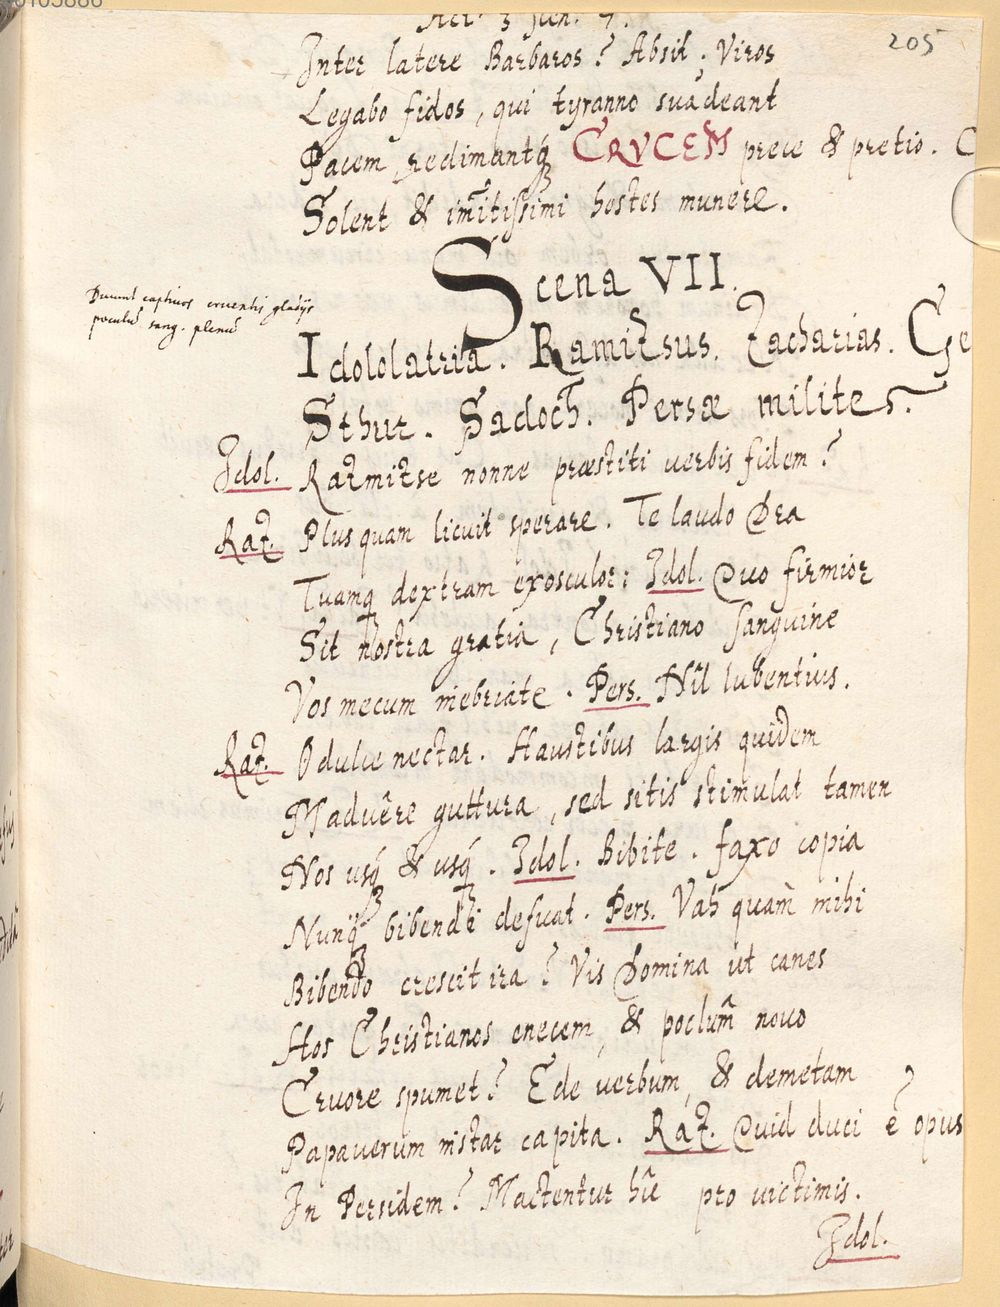 205
Inter latere Barbaros? Absit; Viros
Legabo fidos, qui tyranno suadeant
Pacem, redimantq́ CRVCEM prece & pretio. C
Solent & im̃itissimi hostes munere.
Scena VII.
Ducunt captivos cruentis gladijs
poculũ sang. plenũ
Idololatria. Ramitsus. Zacharias. Ge
Sthur. Sadoch. Persæ milites.
Idol. Razmitse nonne præstiti verbis fidem?
Raz. Plus quam licuit sperare. Te laudo Dea
Tuamq́ dextram exosculor: Idol. Quo firmior
Sit nostra gratia, Christiano sanguine
Vos mecum inebriate. Pers. Nil lubentius.
Raz. O dulce nectar. Haustibus largis quidem
Maduêre guttura, sed sitis stimulat tamen
Nos usq́ & usq́. Idol. Bibite. faxo copia
Nunq́ bibendi desuat. Pers. Vah quam̀ mihi
Bibendo crescit ira? Vis Domina ut canes
Hos Christianos enecem, & poclum̃ novo
Cruore spumet? Ede verbum, & demetam
Papaverum instar capita. Raz. Quid duci ẽ opus?
In Persidem? Mactentur hîc pro victimis.
Idol.